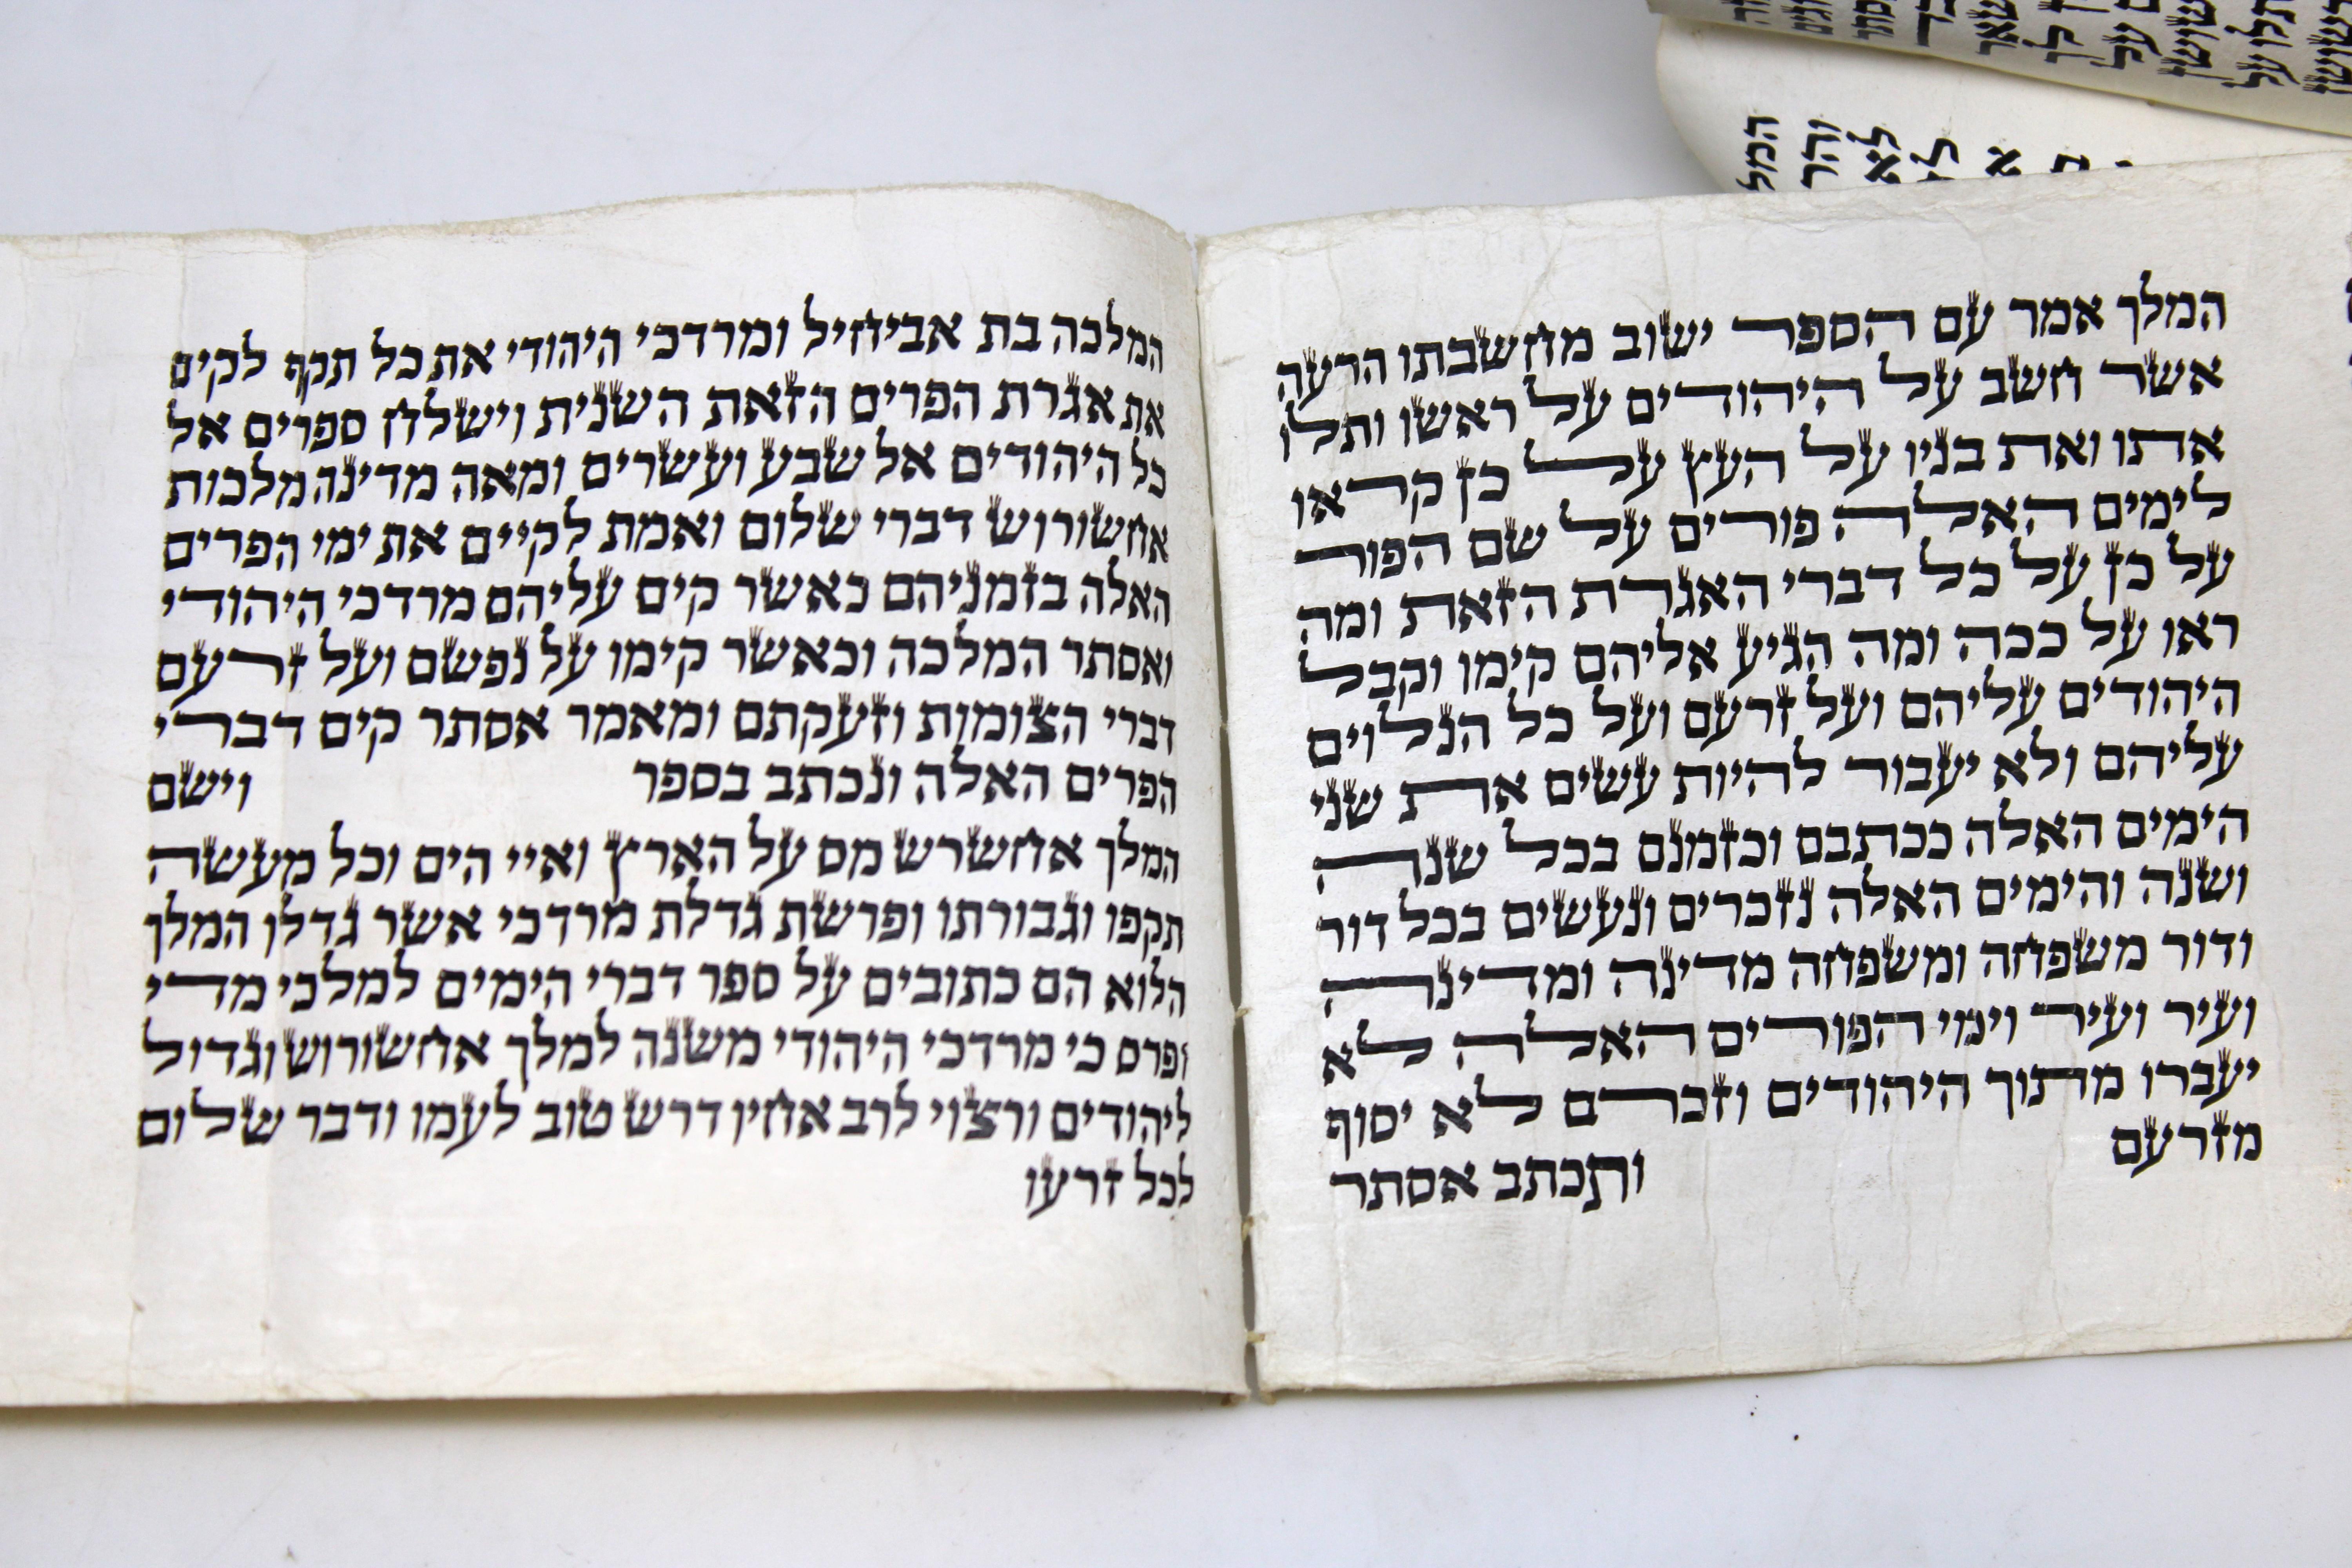 המלך אמר עם הספר ישוב מחשבתו הרעה
אשר חשב על היהודים על ראשו ותלו
אתו ואת בניו על העץ על כן קראו
לימים האלה פורים על שם הפור
על כן על כל דברי האגרת הזאת ומה
ראו על ככה ומה הגיע אליהם קימו וקבל
היהודים עליהם ועל זרעם ועל כל הנלוים
עליהם ולא יעבור להיות עשים את שני
הימים האלה ככתבם וכזמנם בכל שנה
ושנה והימים האלה נזכרים ונעשים בכל דור
ודור משפחה ומשפחה מדינה ומדינה
ועיר ועיר וימי הפורים האלה לא
יעברו מתוך היהודים וזכרם לא יסוף
מזרעם
ותכתב אסתר
המלכה בת אביחיל ומרדכי היהודי את כל תקף לקים
את אגרת הפרים הזאת השנית וישלח ספרים אל
כל היהודים אל שבע ועשרים ומאה מדינה מלכות
אחשורוש דברי שלום ואמת לקיים את ימי הפרים
האלה בזמניהם כאשר קים עליהם מרדכי היהודי
ואסתר המלכה וכאשר קימו על נפשם ועל זרעם
דברי הצומות וזעקתם ומאמר אסתר קים דברי
הפרים האלה ונכתב בספר וישם
המלך אחשרש מס על הארץ ואיי הים וכל מעשה
תקפו וגבורתו ופרשת גדלת מרדכי אשר גדלו המלך
הלוא הם כתובים על ספר דברי הימים למלכי מדי
ופרס כי מרדכי היהודי משנה למלך אחשורוש וגדול
ליהודים ורצוי לרב אחיו דרש טוב לעמו ודבר שלום
לכל זרעו